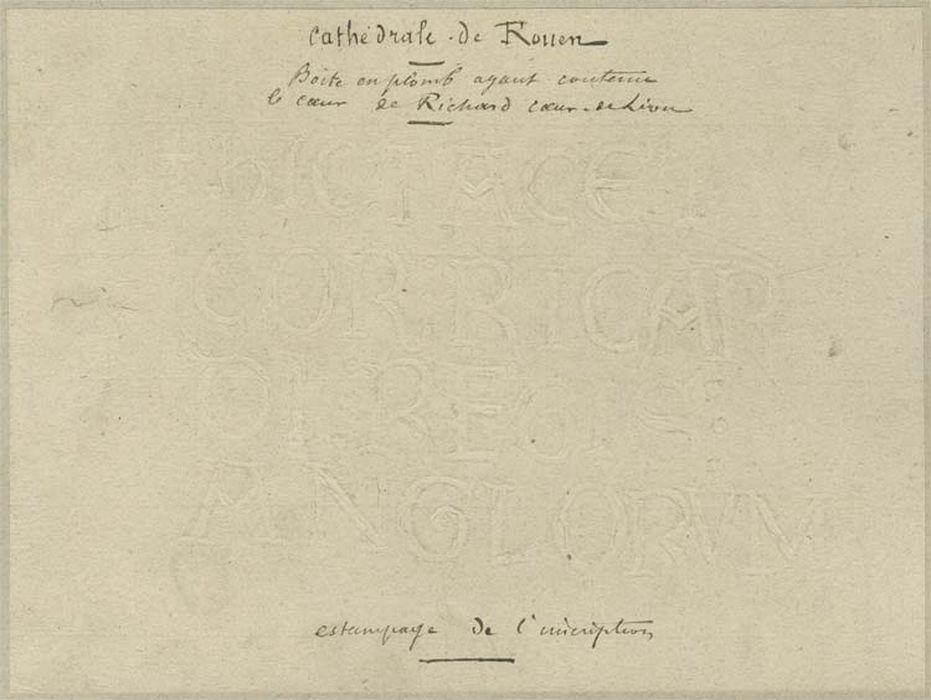 Cathédrale de Rouen
Boîte en plomb ayant contenu
le cœur de Richard cœur-de-Lion
+ HIC IACET
COR RICAR
DI REGIS
ANGLORVM
estampage de l'inscription